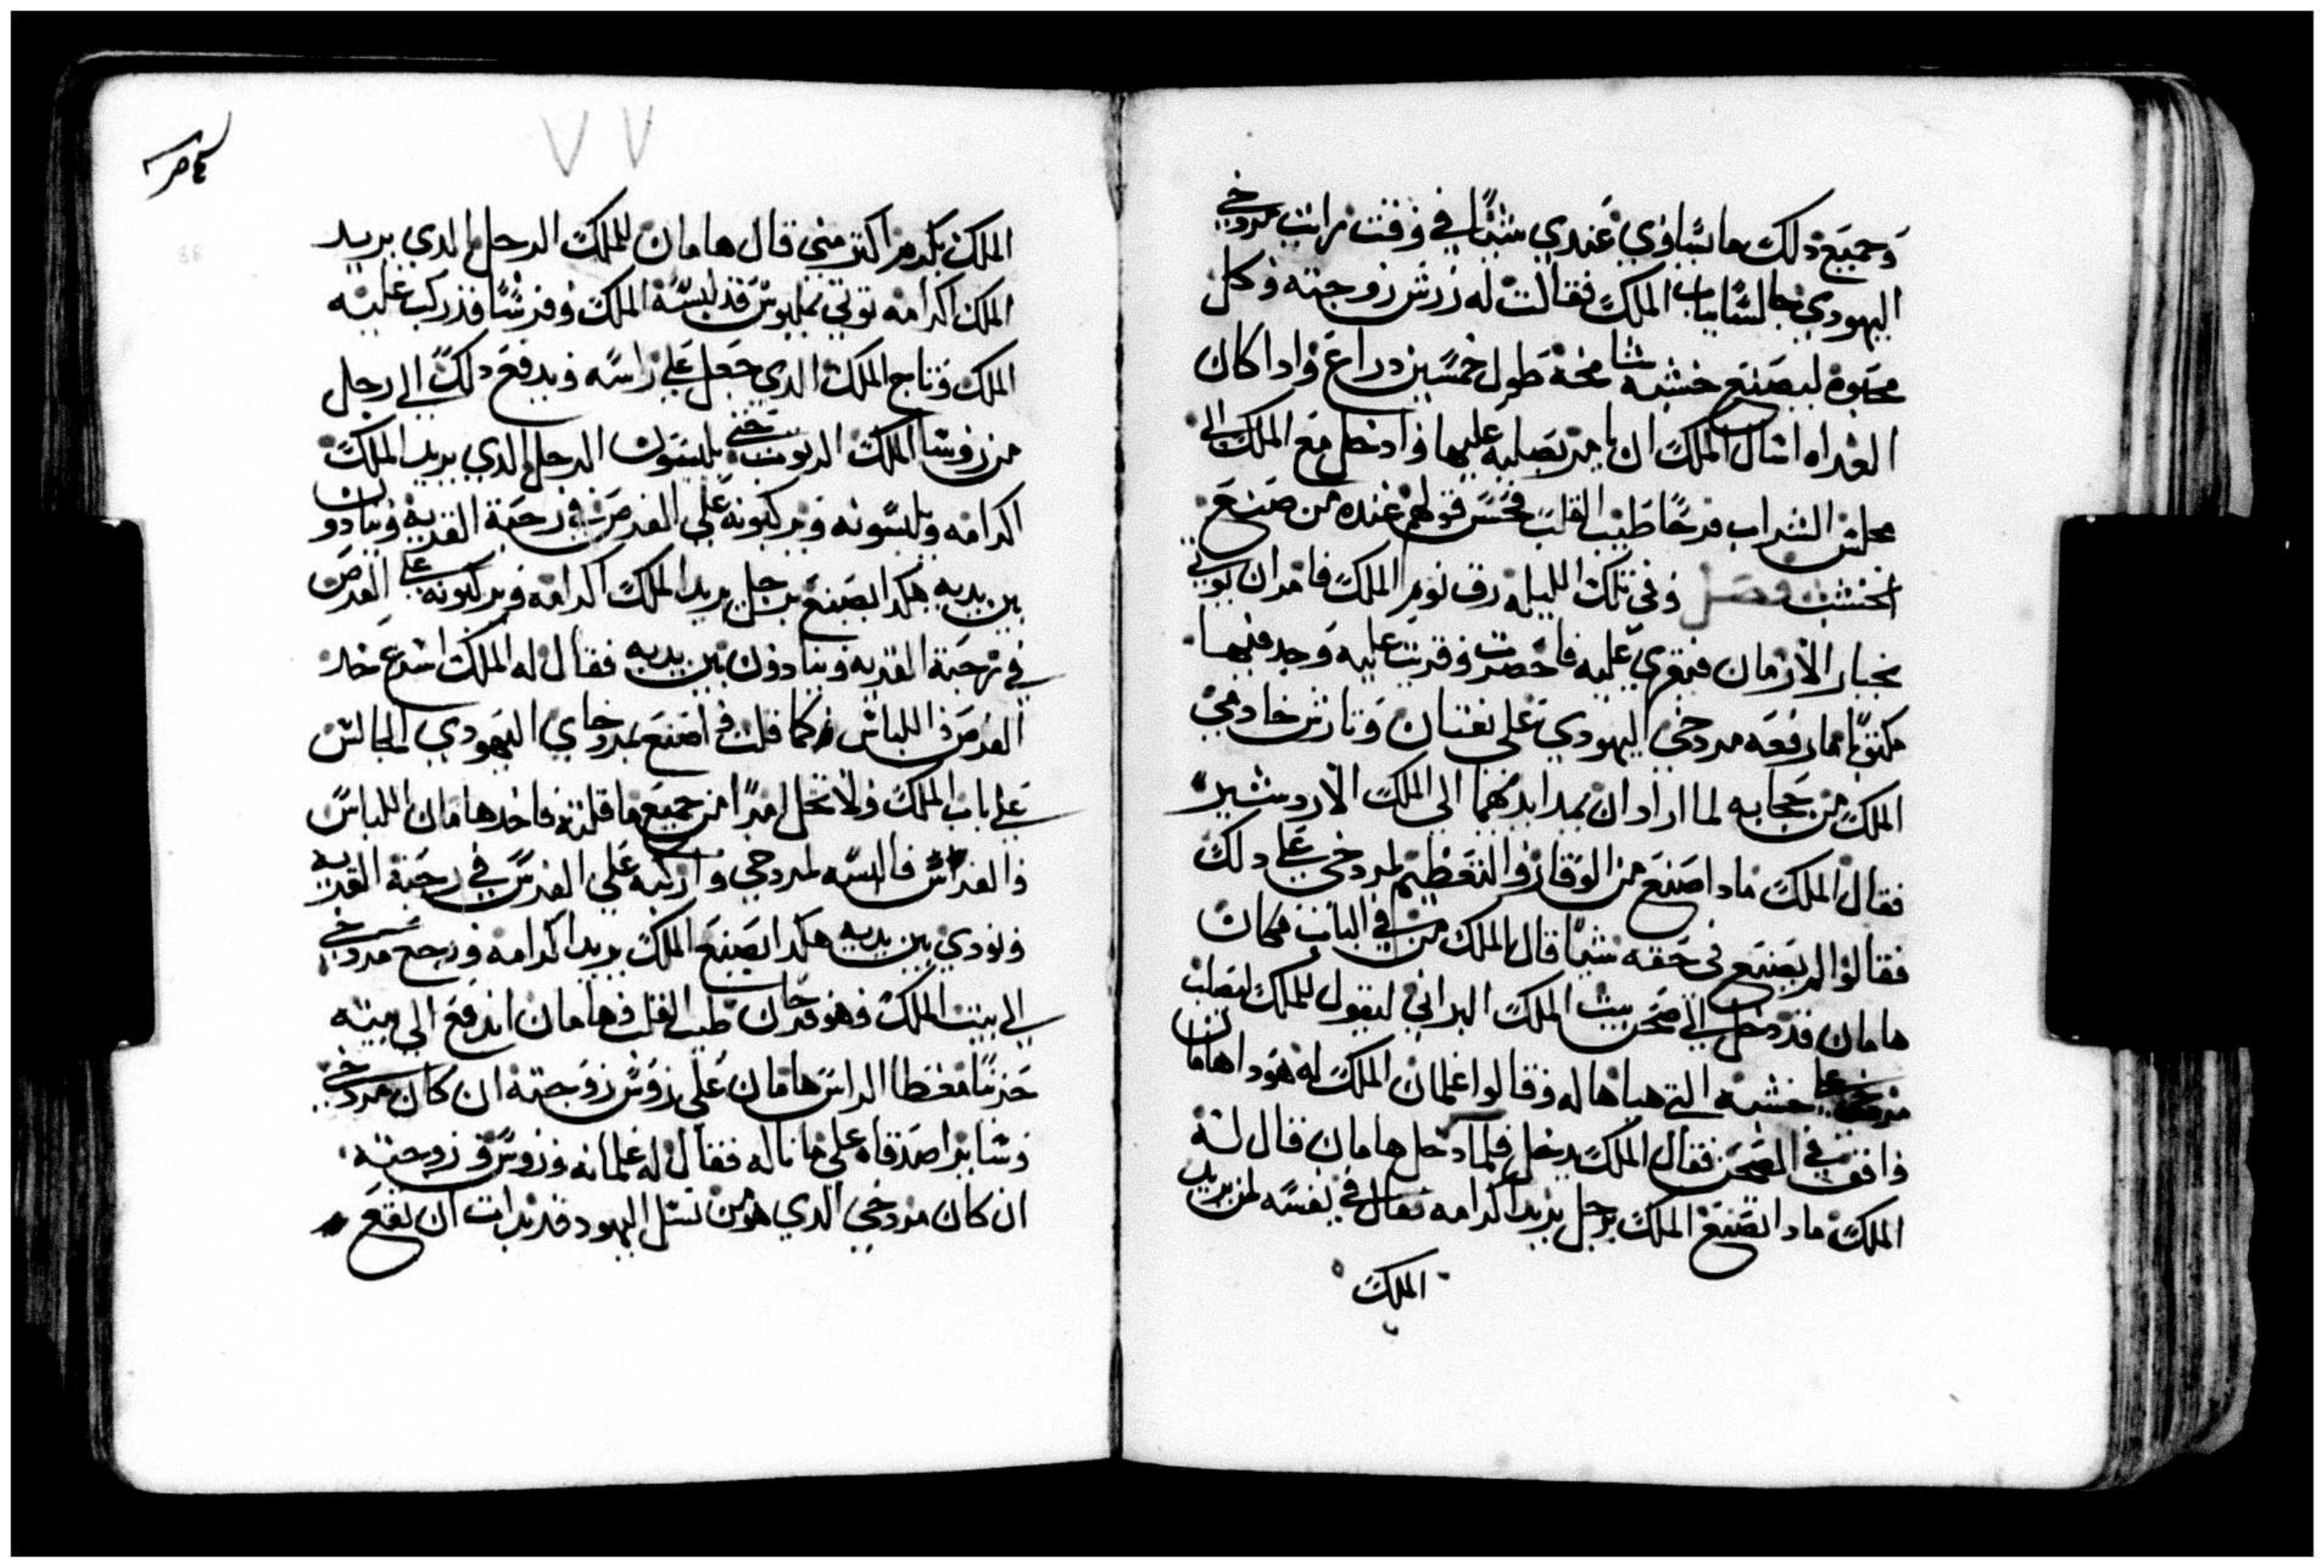 وجميع دلك ما يساوي عندي شيًا في وقت رايت مردخي
اليهودي جالسًا بباب الملك فقالت له زرش زوجته وكل
محبوه ليصنع خشبه شامخة طول خمسين دراع وادا كان
الغداه اسال الملك ان يامر بصلبه عليها وادخل مع الملك الى
مجلس الشراب فرحًا طيب القلب فحسن قولهم عنده من صنع
الخشب فصل وفي تلك الليله رق نوم الملك فامر ان يوتي
بخبار الازمان فيقري عليه فاحضرت وقريت عليه وجد فيها
مكتوبًا مما رفعه مردخي اليهودي على بغتان وتارش خادمي
الملك من حجابه لما ارادان يمدا يديهما الى الملك الاردشير
فقال الملك مادا صنع من الوقار والتعظيم لمردخي على دلك
فقالوا لم يصنع في حقه شيًا قال الملك من في الباب وكان
هامان قد دخل الى صحن بيت الملك البراني ليقول للملك ليصلب
مردخي على خشبه التي هياها له وقالوا غلمان الملك له هودا هامان
واقف في الصحن فقال الملك يدخل فلما دخل هامان قال له
الملك مادا تصنع الملك برجل يريد اكرامه فقال في نفسه لمن يريد
الملك
٧٧
الملك يكرم اكتر مني قال هامان للملك الرجل الدي يريد
الملك اكرامه توتي بملبوس قد لبسه الملك وفرسًا قد ركب عليه
الملك وتاج الملك الدي جعل على راسه ويدفع دلك الى رجل
من روسا الملك الربوت حتى يلبسون الرجل الدي يريد الملك
اكرامه ويلبسونه ويركبونه على الفرس في رحبة القريه وينادون
بين يديه هكدا يصنع برجل يريد الملك اكرامه ويركبونه على الفرس
في رحبة القريه وينادون بين يديه فقال له الملك اسرع خد
الفرس واللباس كما قلت واصنع لمردخاي اليهودي الجالس
على باب الملك ولا تخل امرًا من جميع ما قلته فاخد هامان اللباس
والفرس فالبسه لمردخي واركبه على الفرس في رحبة القريه
ونودي بين يديه هكدا يصنع الملك يريد اكرامه ورجع مردخي
الى بيت الملك وهو فرحان طيب القلب وهامان اندفع الى بيته
حزينًا مغطا الراس هامان على زوش زوجته ان كان مردخي
وساير اصدقاه على ما ناله فقال له غلمانه وزوش زوجته
ان كان مردخي الدي هو من نسل اليهود قد بدات ان تقع